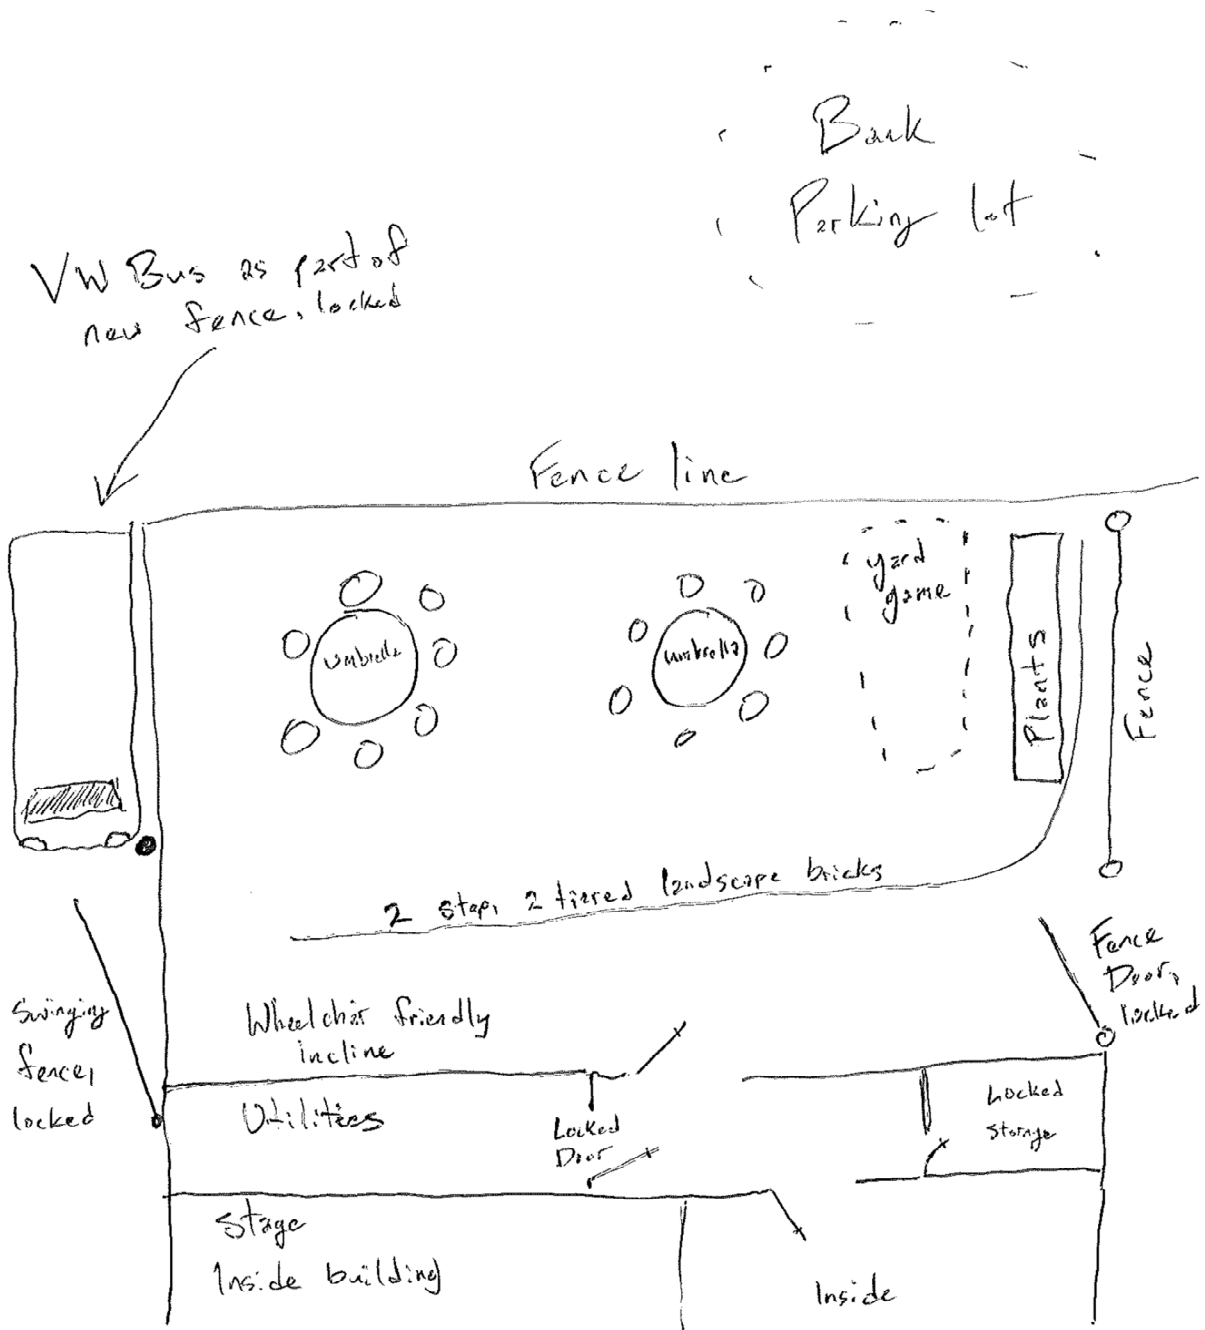 Back
Parking lot
VW Bus as part of
new fence, locked
Fence line
yard
game
umbrella
umbrella
Plants
Fence
2 step, 2 tiered landscape bricks
Fence
Door,
locked
Swinging
fence,
locked
Wheelchair friendly
incline
Utilities
Locked
Door
Locked
storage
Stage
Inside building
Inside